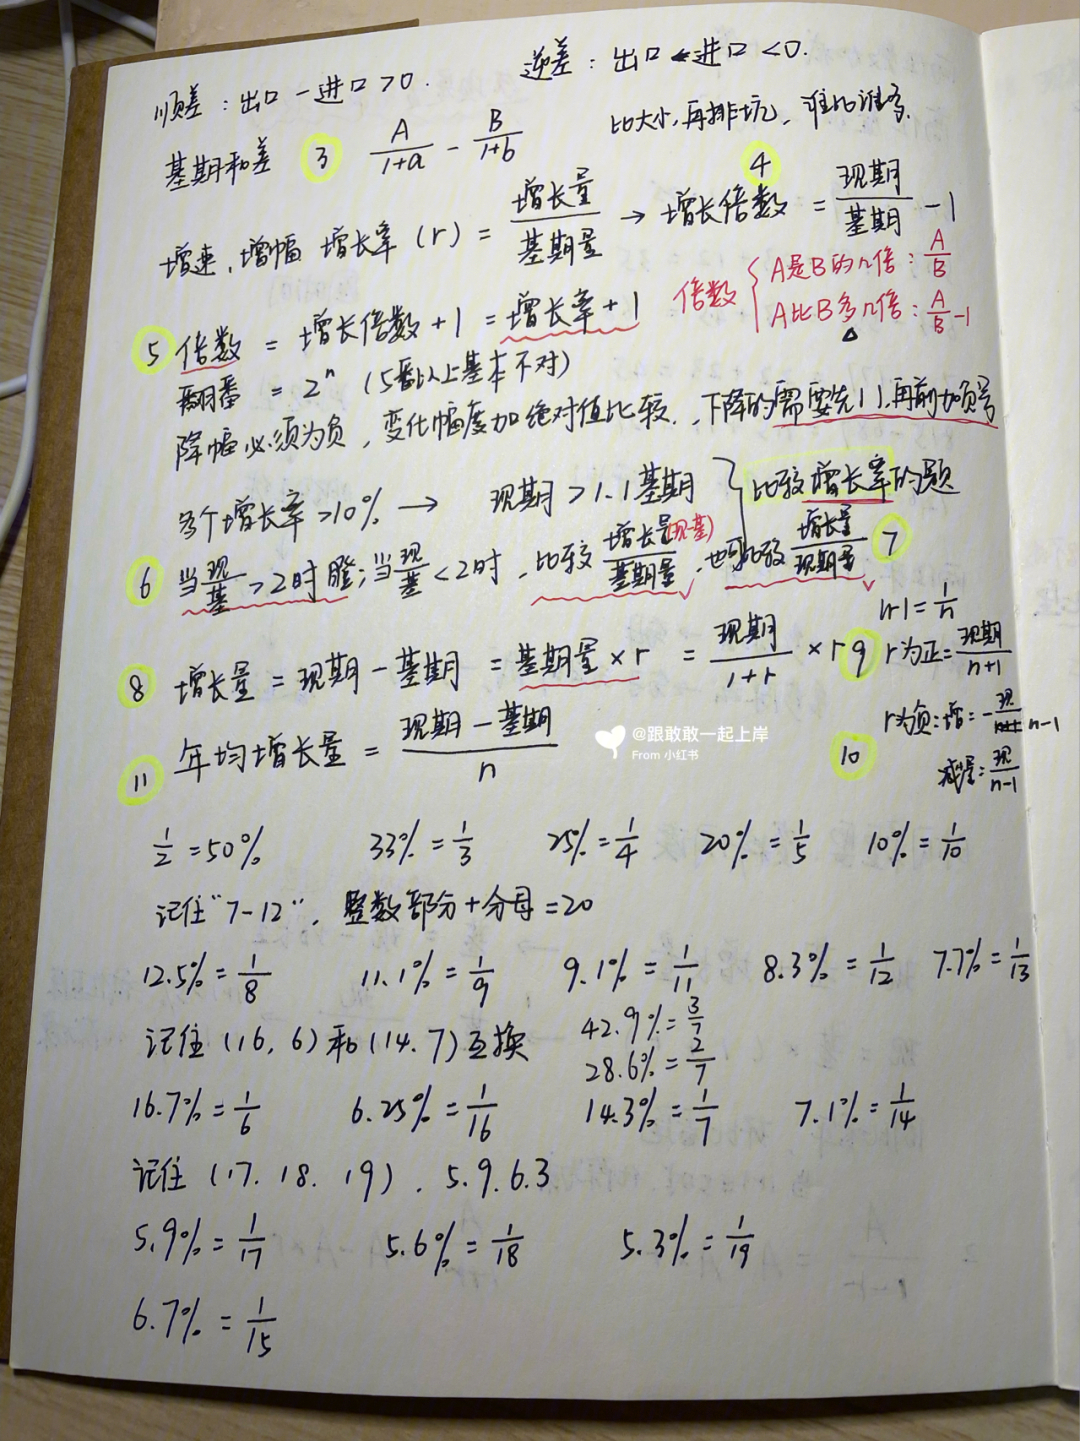 顺差：出口－进口>0. 逆差：出口－进口<0.
基期和差 ③ A/(1+a) - B/(1+b) 比大小，再排坑，谁比谁多.
④
增速、增幅 增长率(r) = 增长量/基期量 → 增长倍数 = 现期/基期 - 1
倍数 { A是B的几倍：A/B
A比B多几倍：A/B-1
⑤ 倍数 = 增长倍数+1 = 增长率+1
翻番 = 2ⁿ (5番以上基本不对)
降幅必须为负，变化幅度加绝对值比较，下降的需要先||再前加负号
多个增长率>10% → 现期>1.1基期 } 比较增长率的题
⑥ 当现/基>2时瞪；当现/基<2时，比较增长量(现-基)/基期量，也可比较增长量/现期量 ⑦
|r|=1/n
⑧ 增长量=现期－基期 = 基期量×r = 现期/(1+r) ×r ⑨ r为正=现期/(n+1)
r为负：增=-现/(n-1)
⑩ 减量=现/(n-1)
⑪ 年均增长量 = (现期－基期)/n
@跟敢敢一起上岸
From 小红书
1/2=50% 33%=1/3 25%=1/4 20%=1/5 10%=1/10
记住"7-12"，整数部分+分母=20
12.5%=1/8 11.1%=1/9 9.1%=1/11 8.3%=1/12 7.7%=1/13
记住(16,6)和(14.7)互换 42.9%=3/7
28.6%=2/7
16.7%=1/6 6.25%=1/16 14.3%=1/7 7.1%=1/14
记住(17.18.19)，5.9.6.3
5.9%=1/17 5.6%=1/18 5.3%=1/19
6.7%=1/15